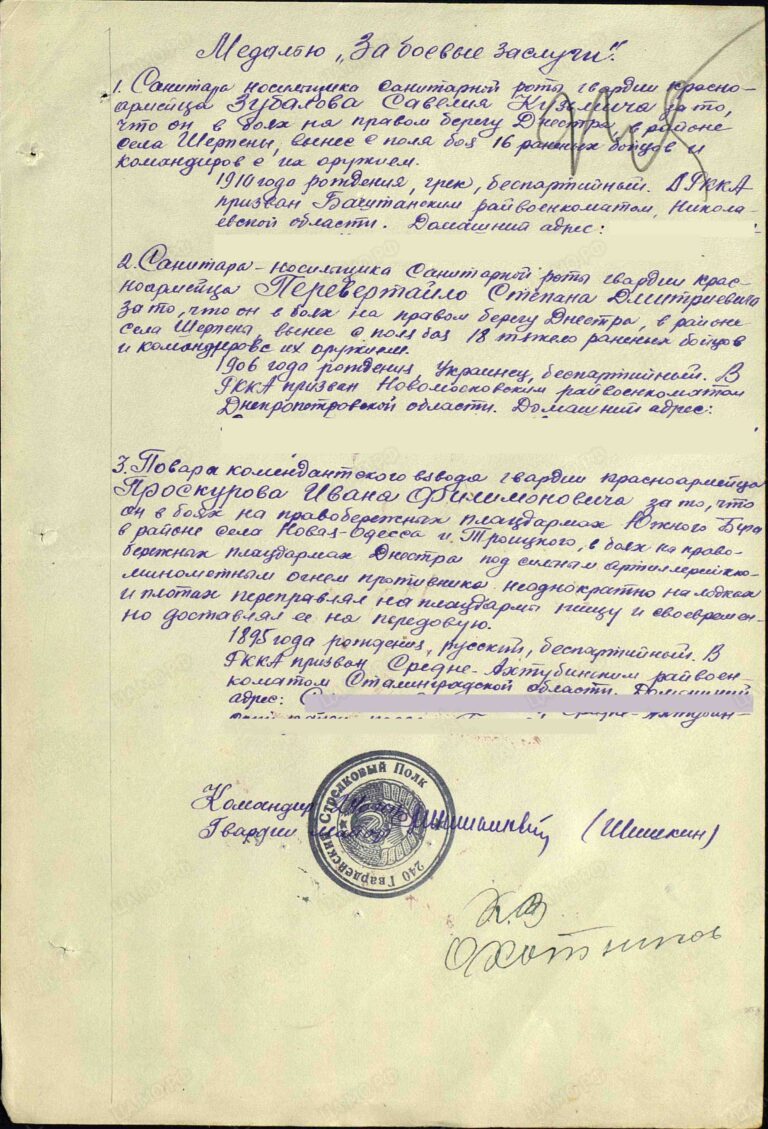 Медалью „За боевые заслуги".
1. Санитара носильщика санитарной роты гвардии красно-
армейца Зубалова Савелия Кузьмича за то,
что он в боях на правом берегу Днестра, в районе
села Шерпены, вынес с поля боя 16 раненых бойцов и
командиров с их оружием.
1910 года рождения, грек, беспартийный. В РККА
призван Баштанским райвоенкоматом, Никола-
евской области. Домашний адрес:
2. Санитара-носильщика Санитарной роты гвардии крас-
ноармейца Перевертайло Степана Дмитриевича
за то, что он в боях на правом берегу Днестра, в районе
села Шерпена, вынес с поля боя 18 тяжело раненых бойцов
и командиров с их оружием.
1906 года рождения, Украинец, беспартийный. В
РККА призван Новомосковским райвоенкоматом
Днепропетровской области. Домашний адрес:
3. Повара комендантского взвода гвардии красноармейца
Проскурова Ивана Филимоновича за то, что
он в боях на правобережных плацдармах Южного Буга
в районе села Новая-Одесса и Троицкого, в боях на право-
бережных плацдармах Днестра под сильным артиллерийско-
минометным огнем противника неоднократно на лодках
и плотах переправлял на плацдармы пищу и своевремен-
но доставлял ее на передовую.
1895 года рождения, русский, беспартийный. В
РККА призван Средне-Ахтубинским райвоен-
коматом Сталинградской области. Домашний
адрес: С
Средне-Ахтубин-
Командир полка
Гвардии майор (Шишкин)
240 Гвардейский Стрелковый Полк
К.В
Охотников